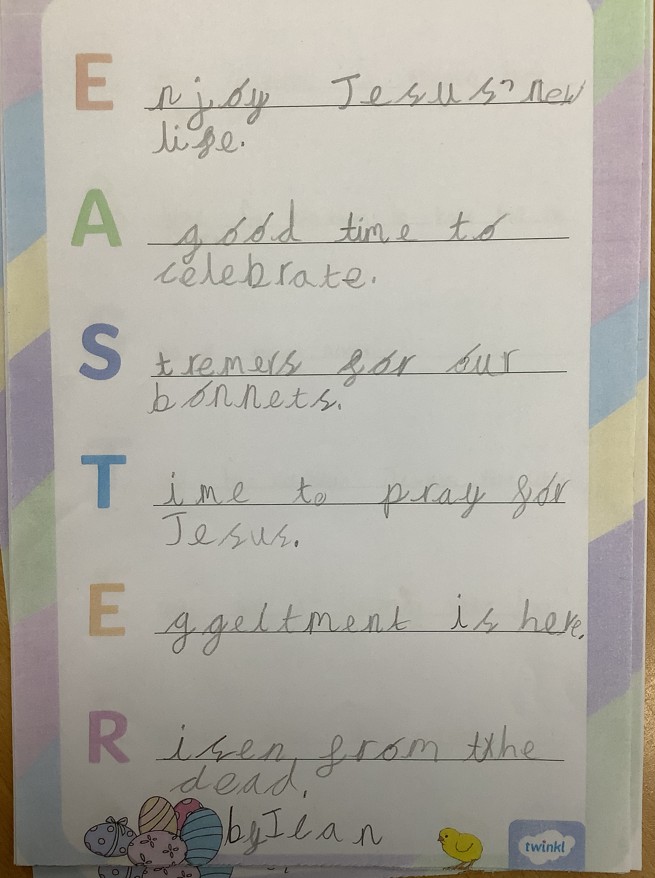 Enjoy Jesus' new
life.
A good time to
celebrate.
Stremers for our
bonnets.
Time to pray for
Jesus.
Eggeltment is here.
Risen from the
dead.
by Ilan
twinkl